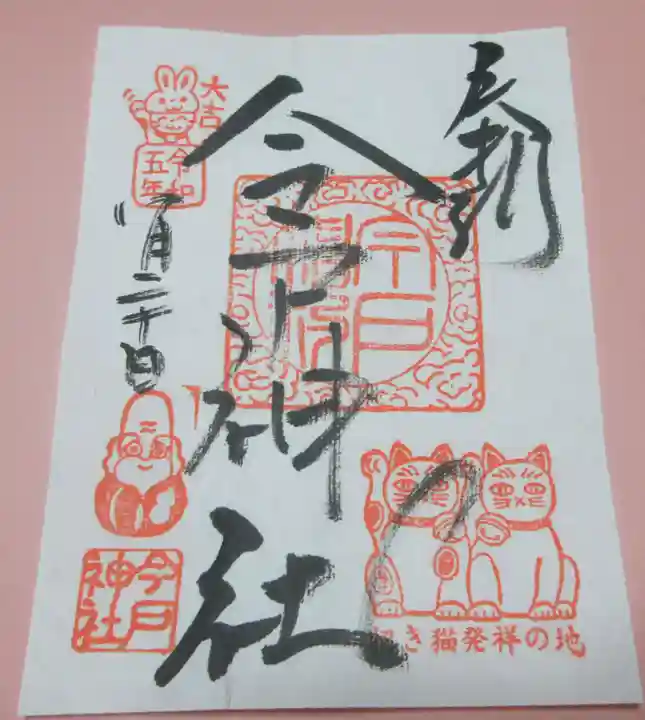 奉拝
今戸神社
大吉
令和
五年
一月二十日
今戸
神社
招き猫発祥の地
今戸
神社